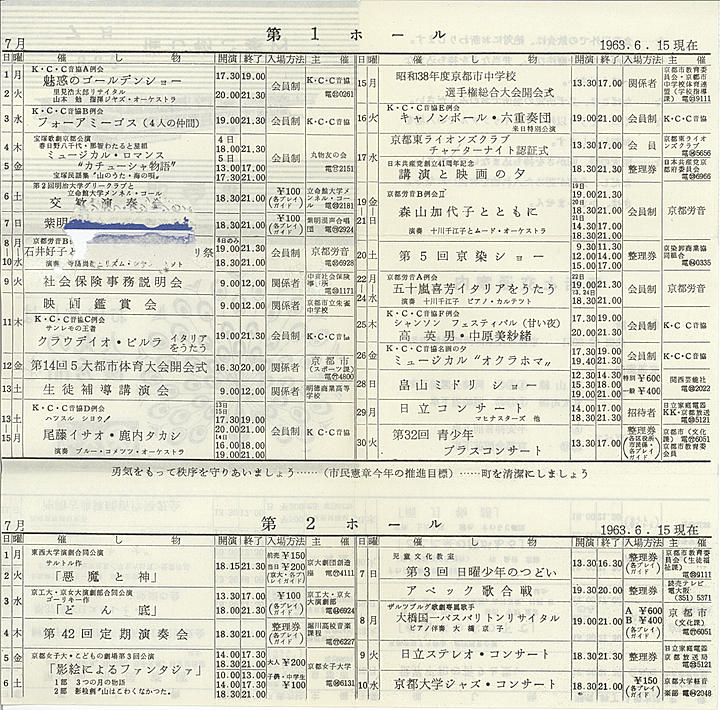 第1ホール
7月
1963.6.15現在
日 曜 催し物 開演 終了 入場方法 主催
1 月 K・C・C音協A例会
魅惑のゴールデンショー 17.30 19.00 会員制 K・C・C音協
2 火 里見浩太郎リサイタル
山本勉 指揮ジャズ・オーケストラ 20.00 21.30
3 水 K・C・C音協B例会
フォーアミーゴス(4人の仲間) 19.00 21.00 会員制 K・C・C音協
4 木 宝塚歌劇京都公演
春日野八千代・那智わたると星組
ミュージカル・ロマンス
5 金 "カチューシャ物語"
宝塚民謡集「山のうた・海の唄」
4日 18.00 21.00
5日 13.00 17.00
17.30 21.00
丸物友の会
2151
6 土 第2回明治大学グリークラブと
立命館大学メンネル・コール
交歓演奏会 18.30 21.00 ¥100 (各プレイガイド) 立命館大学メンネル・コール 2181
7 日 紫明 18.30 21.00 ¥100 (各プレイガイド) 紫明混声合唱団 2924
8 月 | 10 水 京都労音B
石井好子と リ祭
4日のみ 19.00 21.30
18.30 21.00
会員制 京都労音 6928
9 火 社会保険事務説明会 9.00 12.00 関係者 中京社会保険事務所 1171
11 木 映画鑑賞会 9.00 12.00 関係者 京都市立朱雀中学校
K・C・C音協C例会
サンレモの王者
クラウデイオ・ビルラ イタリアをうたう 19.00 21.30 会員制 K・C・C音協
12 金 第14回5大都市体育大会開会式 16.30 20.00 関係者 京都市(スポーツ課) 4800
13 土 生徒補導講演会 9.00 12.00 関係者 明徳商業高等学校
13 土 | 15 月 K・C・C音協D例会
ハツスル ショウ!
尾藤イサオ・鹿内タカシ
演奏 ブルー・コメッツ・オーケストラ
13日 15日 17.30 19.00
20.00 21.30
14日 16.00 18.00
19.00 21.00
会員制 K・C・C音協
日 曜 催し物 開演 終了 入場方法 主催
15 月 昭和38年度京都市中学校
選手権総合大会開会式 13.30 17.00 関係者 京都市教育委員会・京都市中学校体育連盟(学校指導課) 9111
16 火 K・C・C音協E例会
キャノンボール・六重奏団
来日特別公演 19.00 21.00 会員制 K・C・C音協
17 水 京都東ライオンズクラブ
チャーターナイト認証式 13.30 17.00 会員 京都東ライオンズクラブ 5656
日本共産党創立41周年記念
講演と映画の夕 18.30 21.30 整理券 日本共産党京都府委員会 6966
19 金 | 21 日 京都労音B例会Ⅱ
森山加代子とともに
演奏 十川千江子とムード・オーケストラ
19日 19.00 21.30
18.30 21.00
21日 14.30 17.00
18.30 21.00
会員制 京都労音
20 土 第5回京染ショー 9.30 11.30
12.00 14.00
15.00 17.00
整理券 京染卸商業協同組合 0335
22 月 | 24 水 京都労音A例会
五十嵐喜芳イタリアをうたう
演奏 十川千江子 ピアノ・カルテット
22日 19.00 21.30
23, 24日 18.30 21.00
会員制 京都労音
25 木 K・C・C音協F例会
シャンソン フェスティバル(甘い夜)
高英男・中原美紗緒 17.30 19.00
20.00 21.30
会員制 K・C・C音協
26 金 K・C・C音協名画の夕
ミュージカル"オクラホマ" 17.30 19.30
19.40 21.30
会員制 K・C・C音協
28 日 畠山ミドリ ショー 12.30 14.30
15.30 18.00
18.30 21.00
特別 ¥600
一般 ¥400
関西芸能社 2022
29 月 日立コンサート
マヒナスターズ 他 14.00 17.00
18.30 21.30
招待者 日立家庭電器 KK・京都放送 5121
30 火 第32回 青少年
ブラスコンサート 13.30 17.00 整理券 (各区役所・市民係・各プレイガイド) 京都市(文化課) 6051 京都市教育委員会
勇気をもって秩序を守りあいましょう……(市民憲章今年の推進目標)……町を清潔にしましょう
第2ホール
7月
1963.6.15現在
日 曜 催し物 開演 終了 入場方法 主催
1 月 東西大学演劇合同公演
サルトル作
2 火 「悪魔と神」 18.15 21.30 前売 ¥150 当日 ¥200 (京大・各プレイガイド) 京大劇団創造座 4111
3 水 京工大・京女大演劇部合同公演
ゴーリキー作
「どん底」 13.30 17.00
18.00 21.30
¥100 (各プレイガイド) 京工大・京女大演劇部 6924
4 木 第42回定期演奏会 18.30 21.00 整理券 (各プレイガイド) 堀川高校音楽課程 6227
5 金 京都女子大・こどもの劇場第3回公演
「影絵によるファンタジア」
6 土 1部 3つの月の物語
2部 影絵劇"山はこわくなかった。"
14.00 17.30
18.30 21.30
10.00 13.00
14.00 17.30
18.30 21.00
大人 ¥200
子供・中学生 ¥100
京都女子大学 6131
日 曜 催し物 開演 終了 入場方法 主催
7 日 児童文化教室
第3回 日曜少年のつどい 13.30 16.30 整理券 (各プレイガイド) 京都市教育委員会(生徒福祉課) 9111
アベック歌合戦 19.30 20.00 整理券 読売テレビ 電大阪 (351) 5371
8 月 ザルツブルグ歌劇専属歌手
大橋国一バスバリトンリサイタル
ピアノ伴奏 大橋京子 19.00 21.00 A ¥600 B ¥400 (各プレイガイド) 京都市 (文化課) 6051
9 火 日立ステレオ・コンサート 18.30 21.30 整理券 日立家庭電器 京都放送局 5121
10 水 京都大学ジャズ・コンサート 18.30 21.00 ¥150 (各プレイガイド) 京都大学軽音楽部 2048